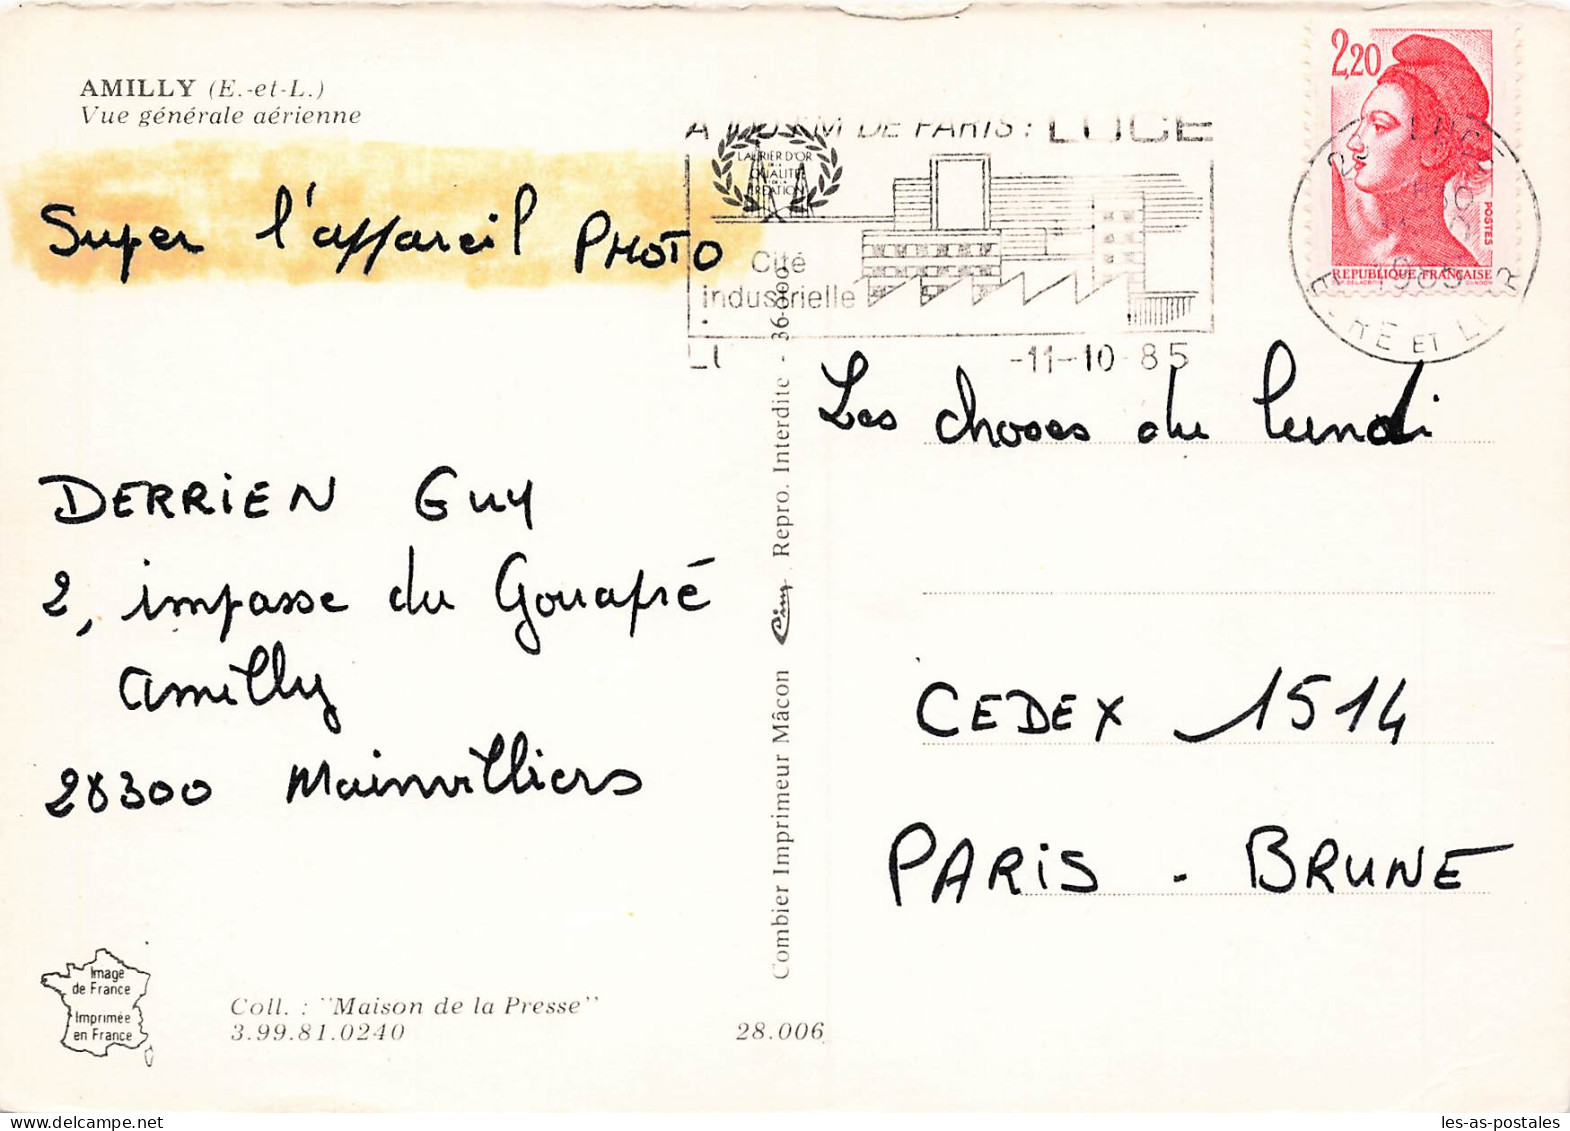 AMILLY (E.-et-L.)
Vue générale aérienne
Super l'appareil PHOTO
DERRIEN GUY
2, impasse du Gouapré
Amilly
28300 Mainvilliers
Image
de France
Imprimée
en France
Coll. : "Maison de la Presse"
3.99.81.0240
28.006
Combier Imprimeur Mâcon Cim Repro. Interdite - 36-010
KM DE PARIS : LUCE
LAURIER D'OR
DE LA
QUALITE
DE LA
CREATION
Cité
industrielle
-11-10-85
2,20
POSTES
REPUBLIQUE FRANÇAISE
1985
EURE ET LOIR
Les choses du lundi
CEDEX 1514
PARIS - BRUNE
les-as-postales